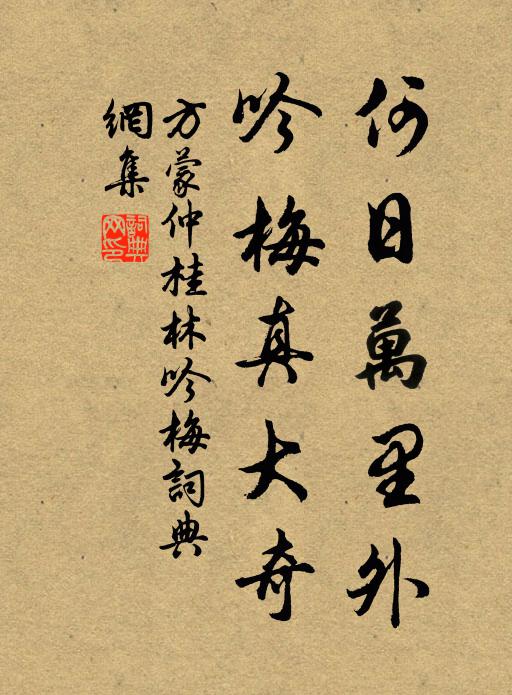 何日萬里外
吟梅真大奇
方蒙仲桂林吟梅詞典
網集
詞典
网印